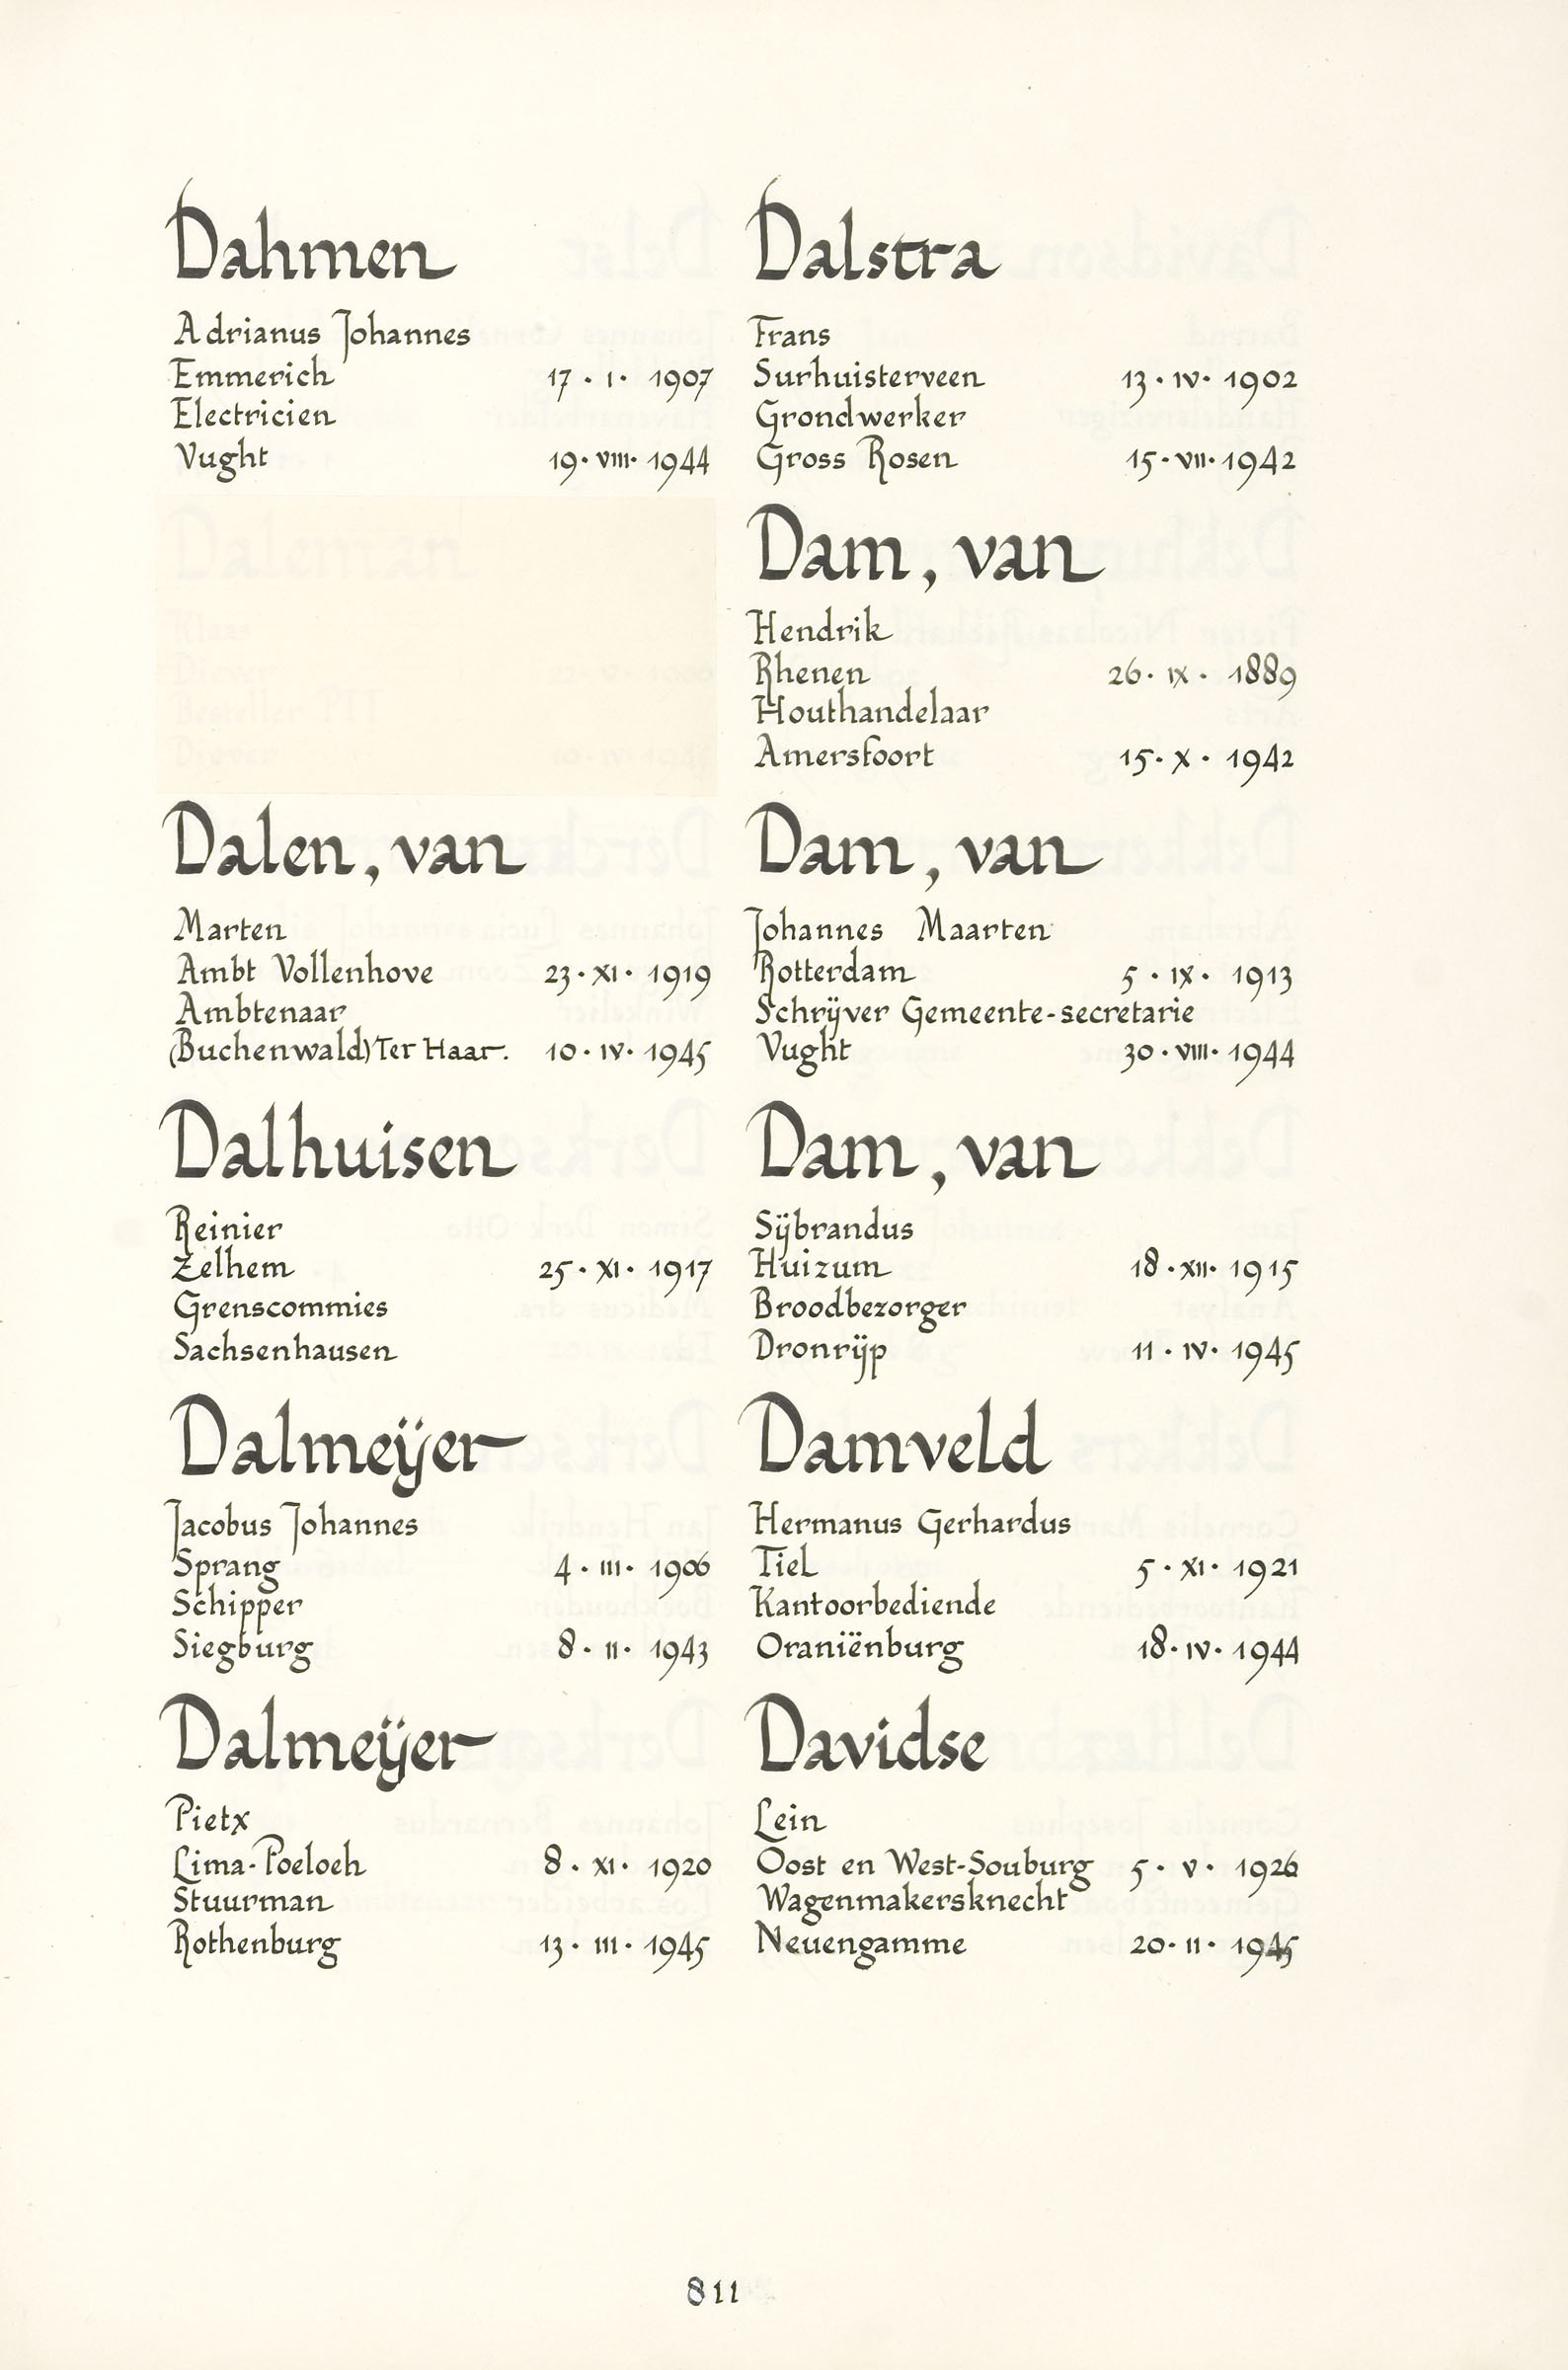 Dahmen
Adrianus Johannes
Emmerich 17 · I · 1907
Electricien
Vught 19 · VIII · 1944
Daleman
Klaas
Diever
Besteller PTT
Diever
Dalen, van
Marten
Ambt Vollenhove 23 · XI · 1919
Ambtenaar
(Buchenwald) Ter Haar. 10 · IV · 1945
Dalhuisen
Reinier
Zelhem 25 · XI · 1917
Grenscommies
Sachsenhausen
Dalmeÿer
Jacobus Johannes
Sprang 4 · III · 1906
Schipper
Siegburg 8 · II · 1943
Dalmeÿer
Pietx
Lima-Poeloeh 8 · XI · 1920
Stuurman
Rothenburg 13 · III · 1945
Dalstra
Frans
Surhuisterveen 13 · IV · 1902
Grondwerker
Gross Rosen 15 · VII · 1942
Dam, van
Hendrik
Rhenen 26 · IX · 1889
Houthandelaar
Amersfoort 15 · X · 1942
Dam, van
Johannes Maarten
Rotterdam 5 · IX · 1913
Schrÿver Gemeente-secretarie
Vught 30 · VIII · 1944
Dam, van
Sÿbrandus
Huizum 18 · XII · 1915
Broodbezorger
Dronrÿp 11 · IV · 1945
Damveld
Hermanus Gerhardus
Tiel 5 · XI · 1921
Kantoorbediende
Oraniënburg 18 · IV · 1944
Davidse
Lein
Oost en West-Souburg 5 · V · 1926
Wagenmakersknecht
Neuengamme 20 · II · 1945
811